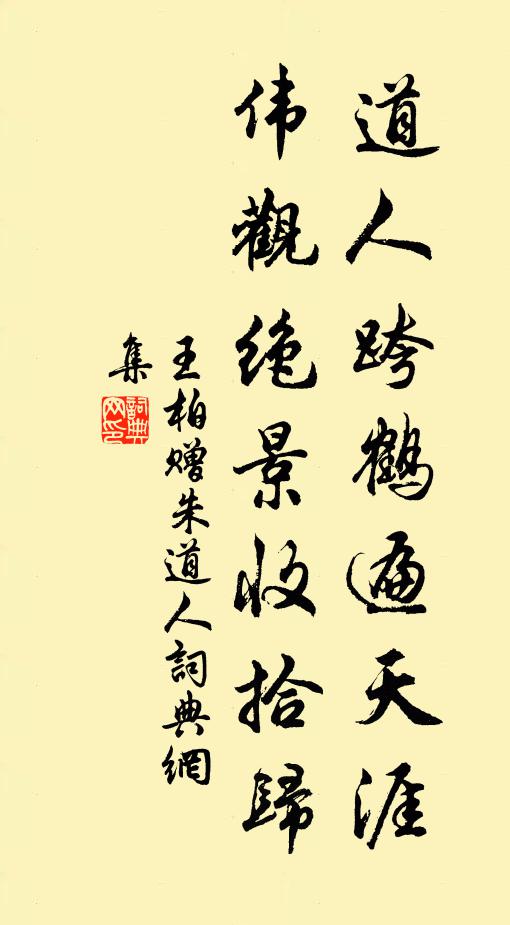 道人跨鹤遍天涯
伟觀绝景收拾歸
王柏赠朱道人詞典網
集
詞典
网印